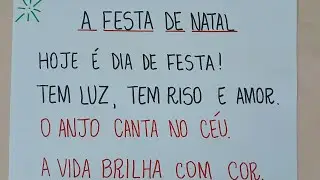 A FESTA DE NATAL
HOJE É DIA DE FESTA!
TEM LUZ, TEM RISO E AMOR.
O ANJO CANTA NO CÉU.
A VIDA BRILHA COM COR.